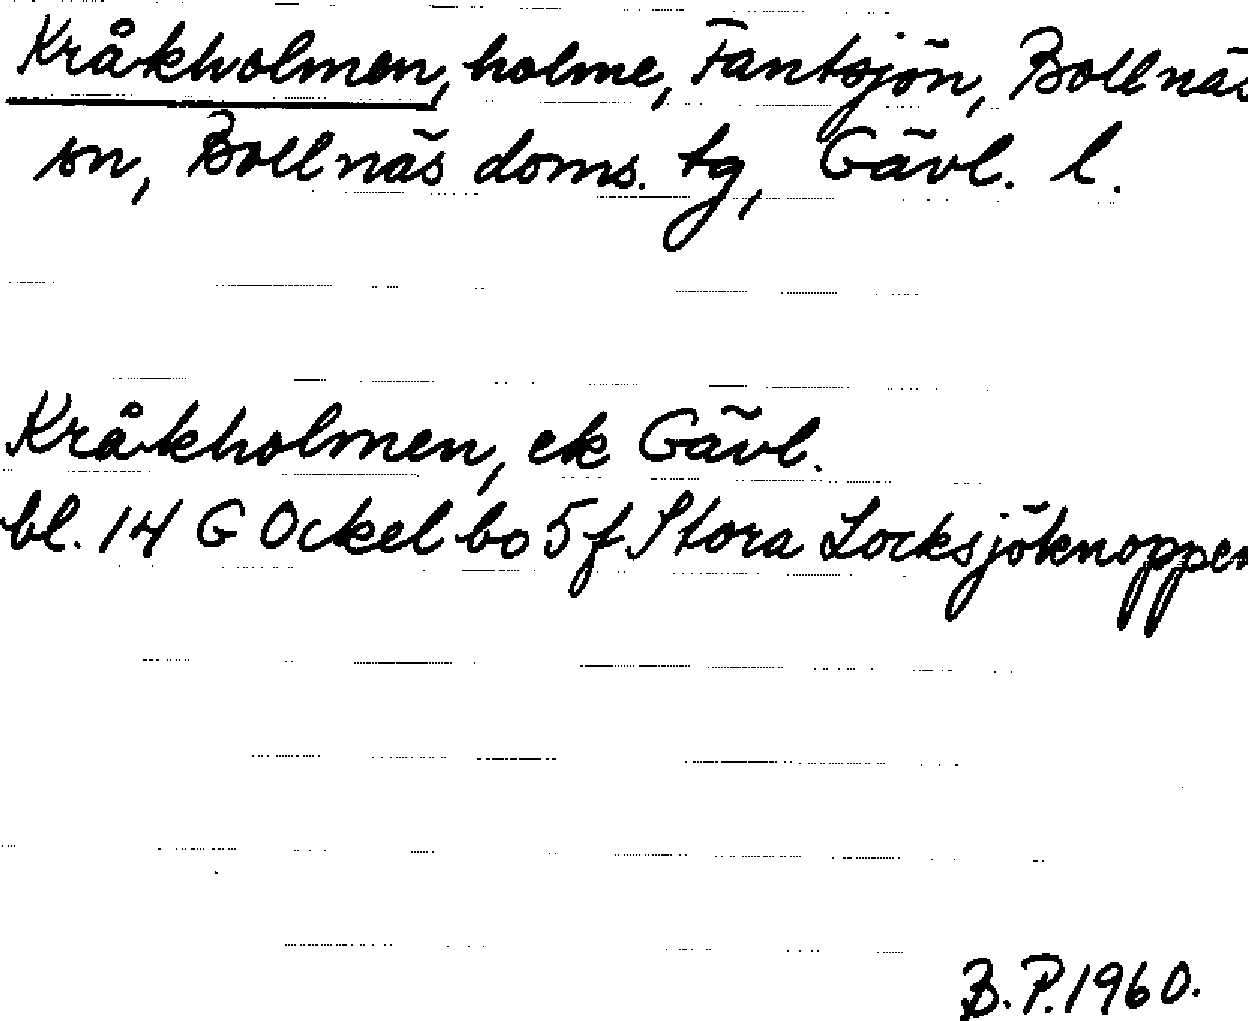 Kråkholmen, holme, Fantsjön, Bollnäs
sn, Bollnäs doms. tg, Gävl. l.
Kråkholmen, ek Gävl.
bl. 14 G Ockelbo 5 f Stora Locksjöknoppen
B.P. 1960.